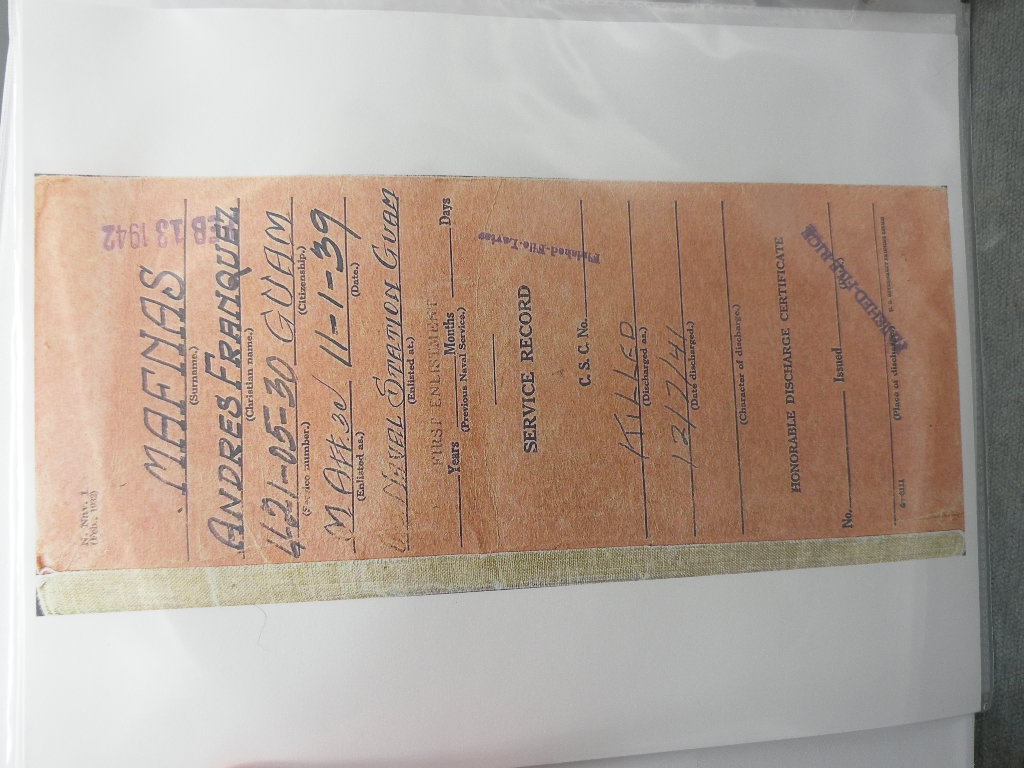 N. Nav. 1
(Feb., 1932)
FEB 13 1942
MAFNAS
(Surname.)
ANDRES FRANQUEZ
(Christian name.)
421-05-30 GUAM
(Service number.) (Citizenship.)
M Att3c 11-1-39
(Enlisted as.) (Date.)
U.S. NAVAL STATION GUAM
(Enlisted at.)
FIRST ENLISTMENT
Years Months Days
(Previous Naval Service.)
Finished-File-
SERVICE RECORD
C. S. C. No.
KILLED
(Discharged as.)
12/7/41
(Date discharged.)
(Character of discharge.)
HONORABLE DISCHARGE CERTIFICATE
No. Issued
FINISHED-FILE-RICE
(Place of discharge.)
U.S. GOVERNMENT PRINTING OFFICE